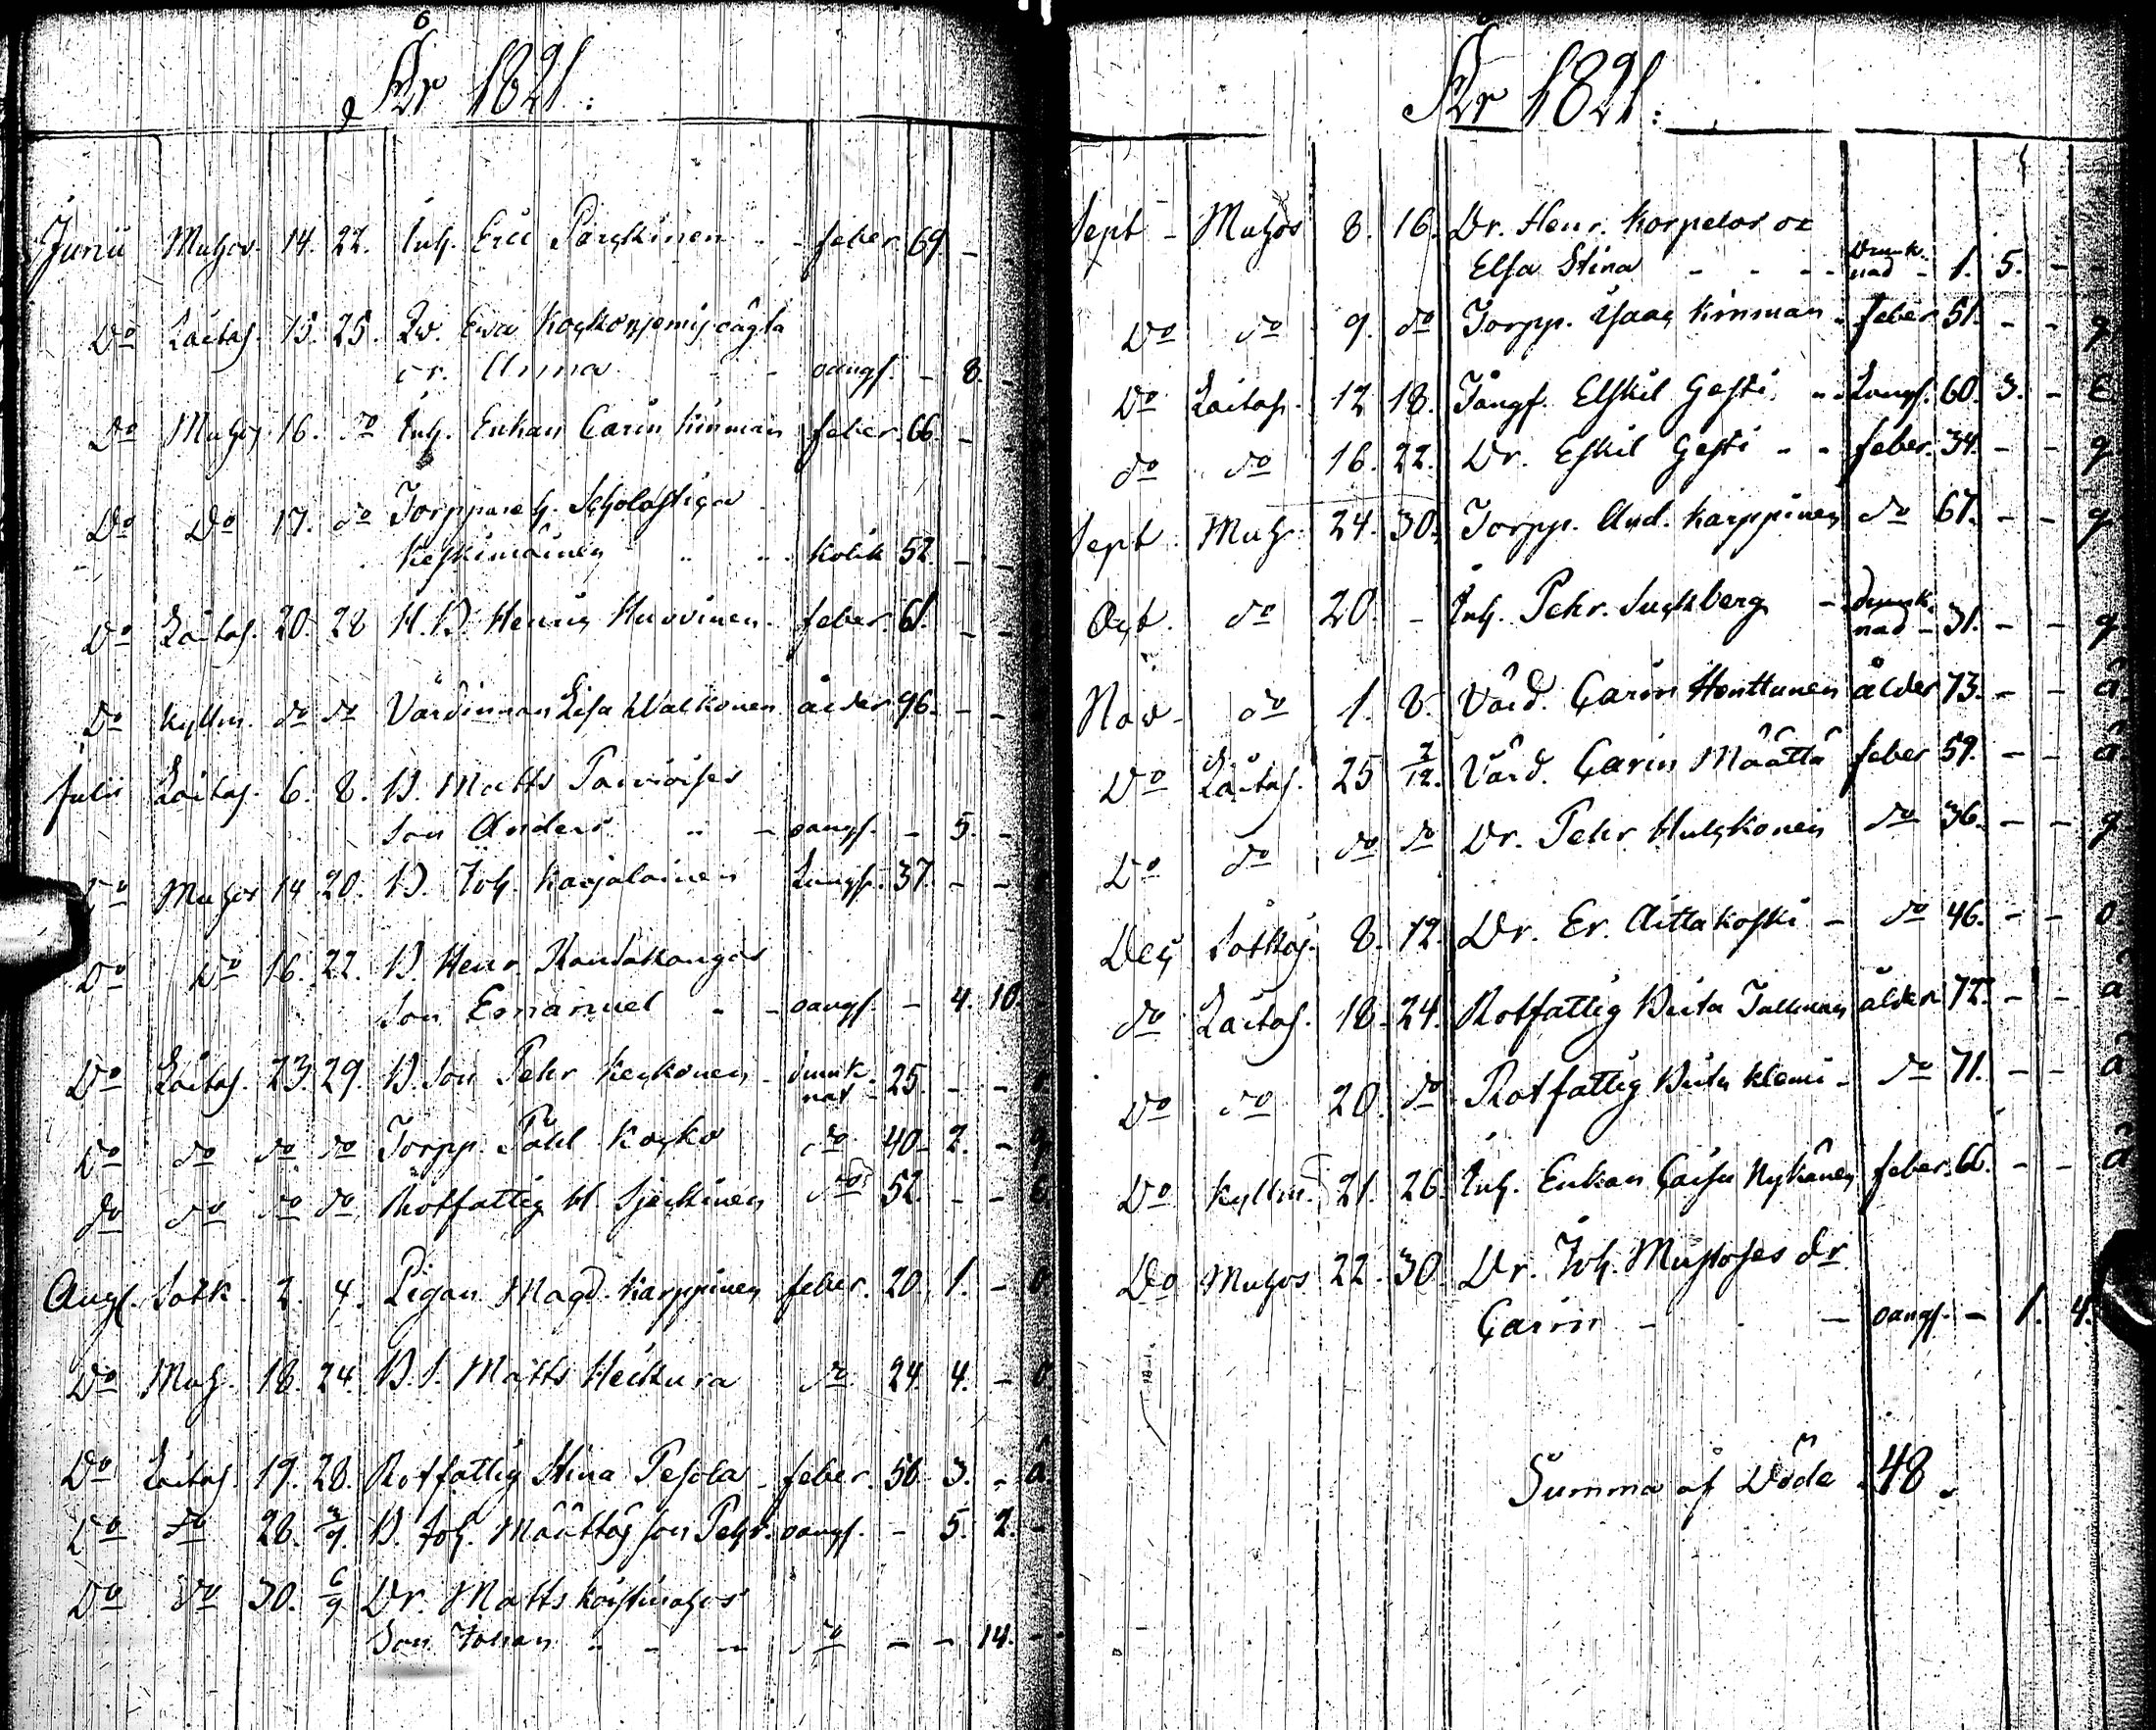 6
År 1821.
Junii Muhos. 14. 22. Inh. Eric Parckinen - feber. 69. -
Do Laitas. 15. 25. Ew. Ewa
dr. Anna - oangf. - 8. -
Do Muhos 16. do Inh. Enkan Carin Kinman feber. 66. -
Do Do 17. do Torpareh. Scholastica
Keskimäinen - kolik 52. - -
Do Laitas. 20. 28 H. B. Henric Huovinen. feber. 61. - -
Do Kyllm. do do Värdinnan Lisa Walkonen ålder 96. - -
Julii Laitas. 6. 8. B. Matts
Son Anders - oangf. - 5. -
Do Muhos 14. 20. B. Joh. Karjalainen Lungs. 37. - -
Do Do 16. 22. B. Henr. Randakangas
Son Emanuel - - oangf. - 4. 10.
Do Laitas. 23. 29. B. Son Pehr Keckonen - drunk-
nat - 25. - -
Do do do do Torpp. Påhl Kocko do 40. 2. - g
do do do do Rotfattig H. do 52. - -
Aug. Sotk. 2. 4. Pigan Magd. Karppinen feber. 20. 1. -
Do Muh. 18. 24. B. S. Matts Heikura do 24. 4. - o.
Do Laitas. 19. 28. Rotfattig Stina Pesola - feber. 56. 3. - a.
Do do 28. 2/9. B. Joh. Määttäs son Pehr. oangf. - 5. 2. -
Do do 30. 6/9 Dr. Matts
Son Johan - - - do - - 14. -
År 1821.
Sept - Muhos 8. 16. Dr. Henr. Korpelas dr
Elsa Stina - - - drunk-
nad - 1. 5. - -
Do do 9. do Torpp. Isaac Kinman - feber 51. - - g
Do Laitas. 12 18. Jungf. Elskil Gesti - Lungs. 60. 3. -
do do 16. 22. Dr. Eskil Gesti - - feber. 34. - - g
Sept. Muh. 24. 30. Torpp. And. Karppinen do 67. - - g
Oct. do 20. - Inh. Pehr. Suckberg - drunk-
nad - 31. - - g
Nov - do 1. 8. Värd. Carin Honttunen ålder 73. - - a
Do Laitas. 25 2/12. Värd. Carin Määttä feber 59. - - a.
Do do do do Dr. Pehr Mulckonen do 36. - - g
Dec Sotkas. 8. 12. Dr. Er. Aittakoski - do 46. - - o.
do Laitas. 18. 24. Rotfattig Brita Tallman ålder 72. - - a
Do do 20. do Rotfattig Brita Klemi - do 71. - - a
Do Kyllm. 21. 26. Inh. Enkan Caisa Nykänen feber. 66. - - a
Do Muhos 22. 30. Dr. Joh. Mustoses dr
Carin - - - oangf. - 1. 4.
Summa af Döde . 48.